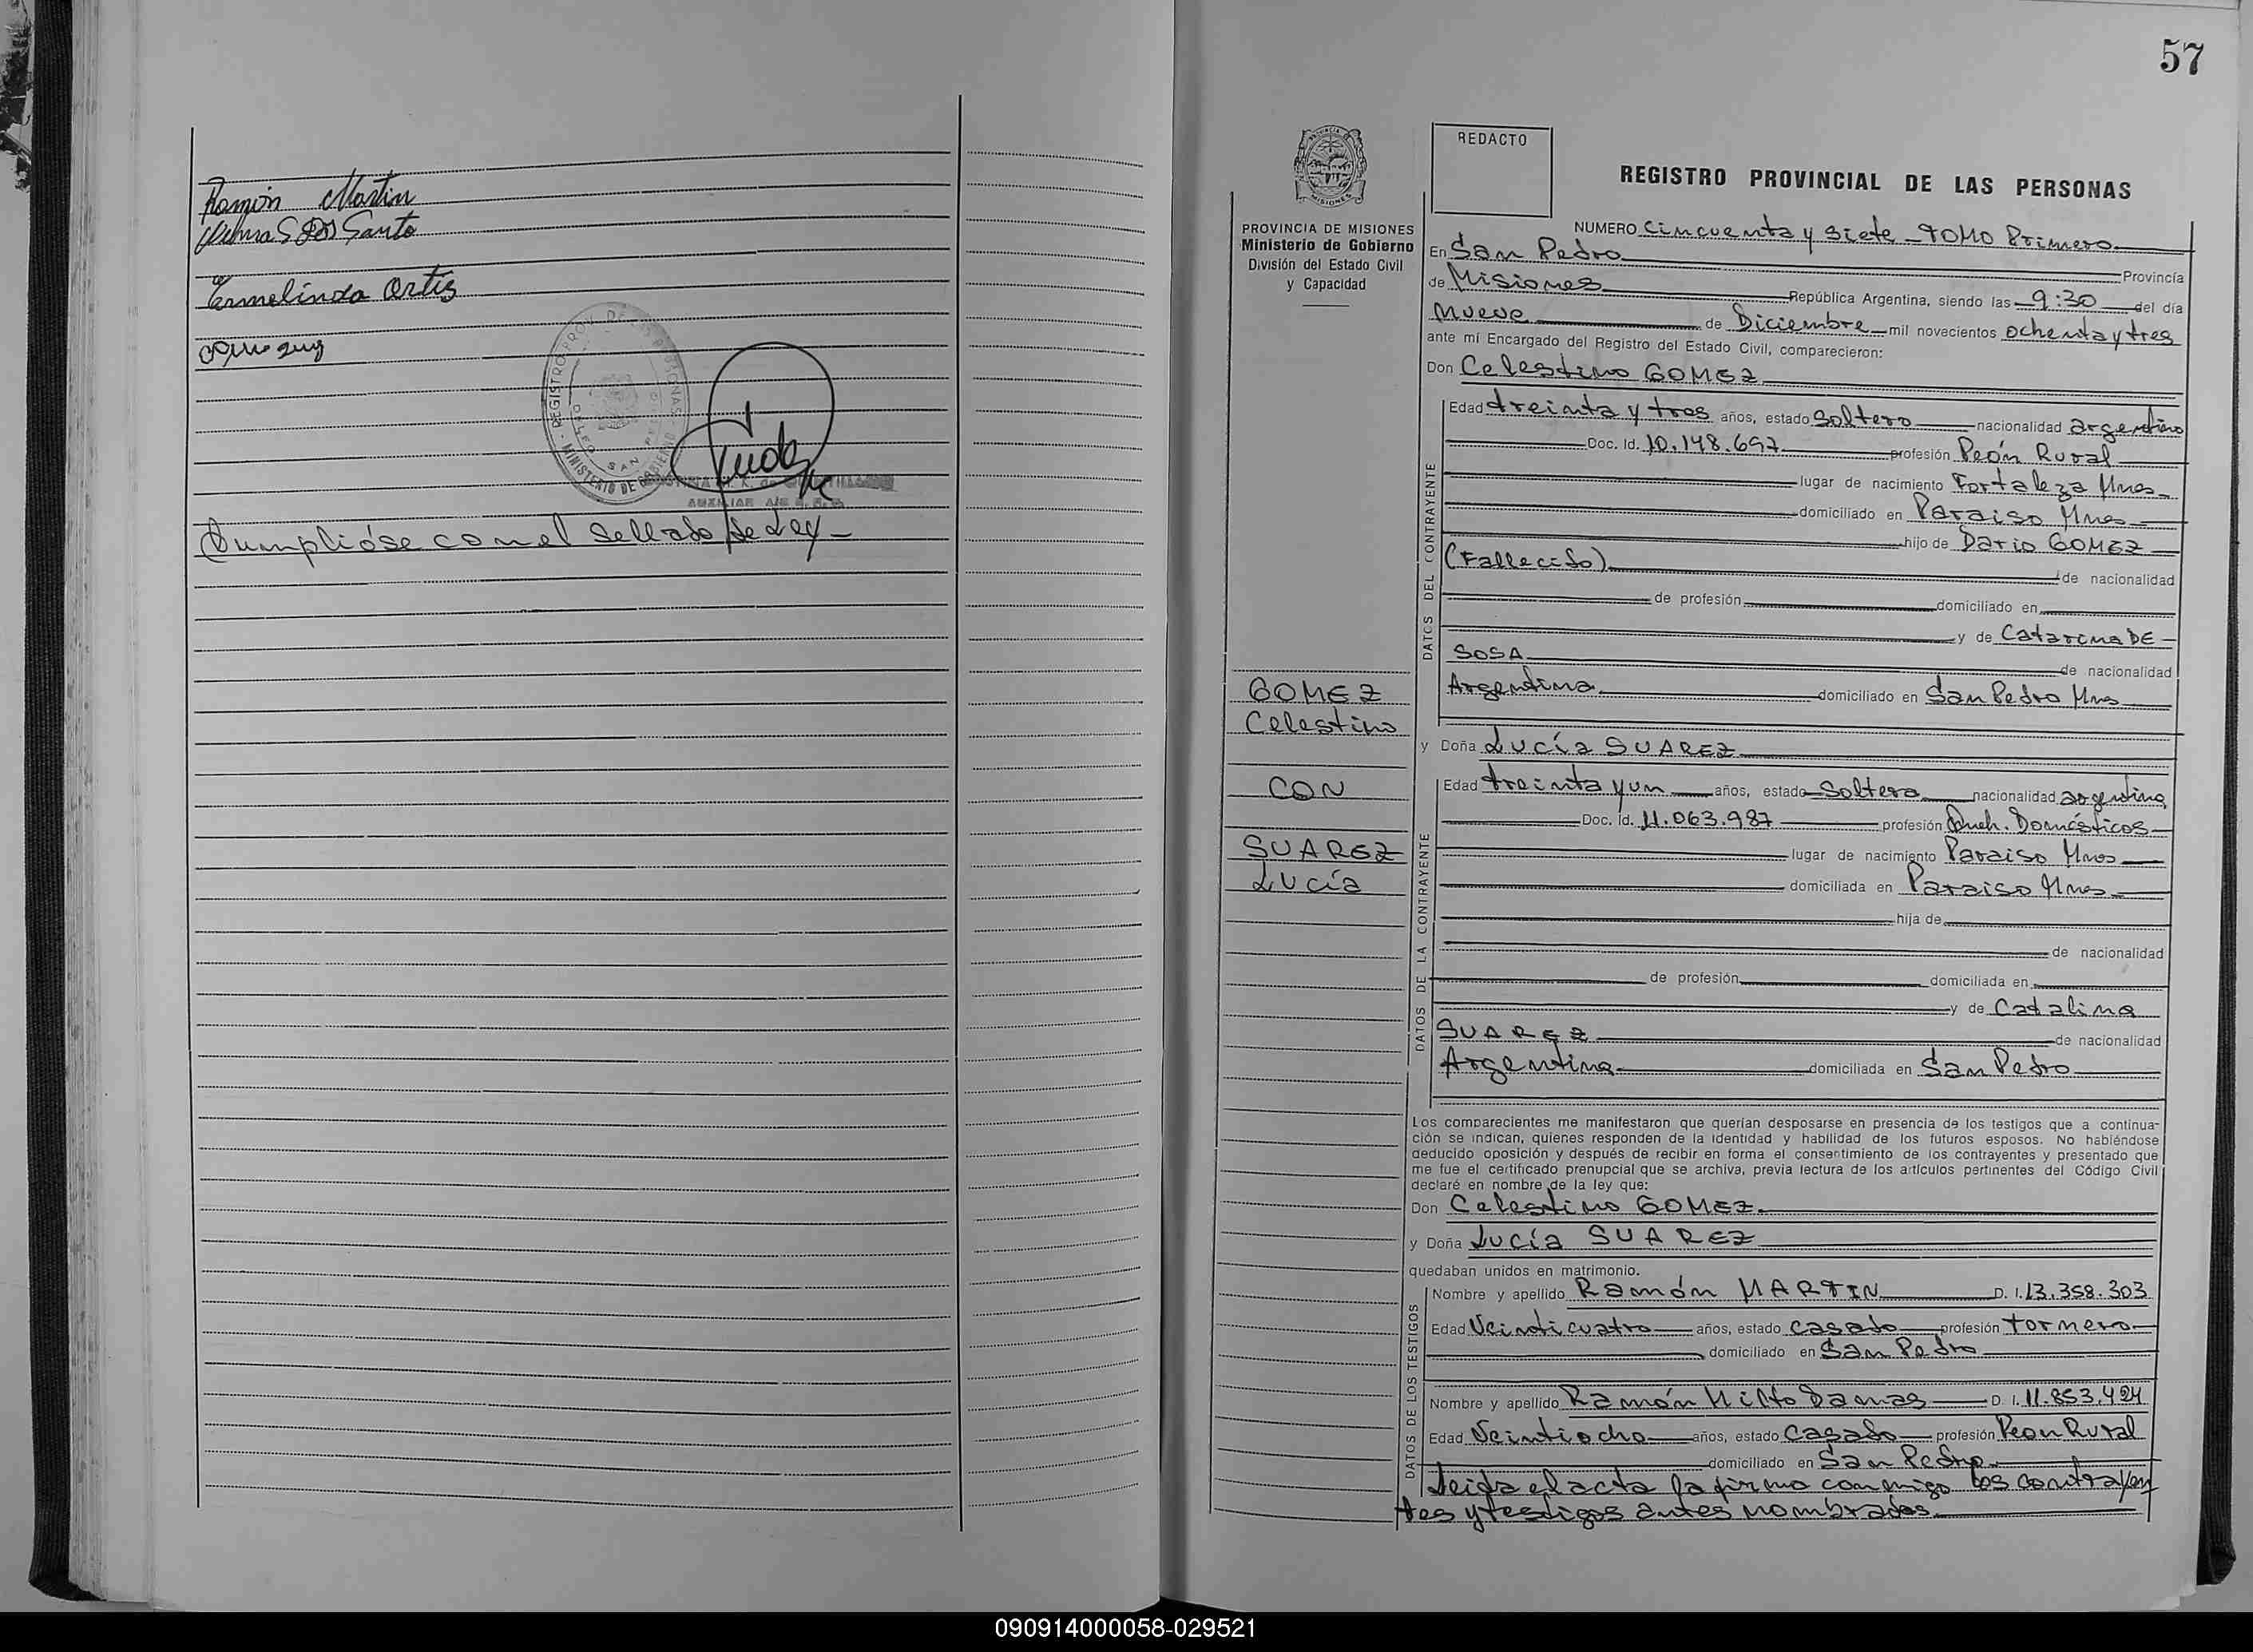 Ramón Martin
Ermelinda Ortiz
REGISTRO PROV. DE LAS PERSONAS
MINISTERIO DE GOBIERNO
SAN PEDRO
Cumplióse con el Sellado de Ley -
57
REDACTO
REGISTRO PROVINCIAL DE LAS PERSONAS
PROVINCIA DE MISIONES
Ministerio de Gobierno
División del Estado Civil
y Capacidad
GOMEZ
Celestino
CON
SUAREZ
Lucía
NUMERO Cincuenta y Siete - TOMO Primero
En San Pedro Provincia
de Misiones República Argentina, siendo las 9:30 del día
nueve de Diciembre mil novecientos ochenta y tres
ante mí Encargado del Registro del Estado Civil, comparecieron:
Don Celestino GOMEZ
DATOS DEL CONTRAYENTE
Edad treinta y tres años, estado Soltero nacionalidad argentino
Doc. Id. 10.148.697 profesión Peón Rural
lugar de nacimiento Fortaleza Mnes
domiciliado en Paraiso Mnes
hijo de Dario GOMEZ
(Fallecido) de nacionalidad
de profesión domiciliado en
y de Catarina DE
SOSA de nacionalidad
Argentina domiciliado en San Pedro Mns
y Doña Lucía SUAREZ
DATOS DE LA CONTRAYENTE
Edad treinta y un años, estado Soltera nacionalidad argentina
Doc. Id. 11.063.987 profesión Queh. Domésticos
lugar de nacimiento Paraiso Mnes
domiciliada en Paraiso Mnes
hija de
de nacionalidad
de profesión domiciliada en
y de Catalina
SUAREZ de nacionalidad
Argentina domiciliada en San Pedro
Los comparecientes me manifestaron que querían desposarse en presencia de los testigos que a continua-
ción se indican, quienes responden de la identidad y habilidad de los futuros esposos. No habiéndose
deducido oposición y después de recibir en forma el consentimiento de los contrayentes y presentado que
me fue el certificado prenupcial que se archiva, previa lectura de los artículos pertinentes del Código Civil
declaré en nombre de la ley que:
Don Celestino GOMEZ
y Doña Lucía SUAREZ
quedaban unidos en matrimonio.
DATOS DE LOS TESTIGOS
Nombre y apellido Ramón MARTIN D. I. 13.358.303
Edad Veinticuatro años, estado casado profesión tornero
domiciliado en San Pedro
Nombre y apellido Ramón D. I. 11.853.424
Edad Veintiocho años, estado casado profesión Peon Rural
domiciliado en San Pedro
Leida el acta la firma conmigo los contrayen
tes y testigos antes nombrados
090914000058-029521